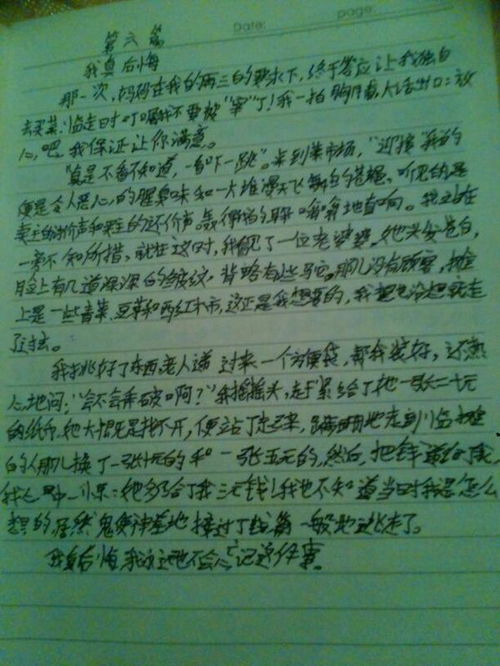 Date: page:
第六篇
我真后悔
那一次,妈妈在我的再三的要求下,终于答应让我独自
去买菜!临走时叮嘱我不要被"宰"了!我一拍胸脯,大话出口:放
心吧,我保证让你满意。
"真是不看不知道,一看吓一跳"。来到菜市场,"迎接"我的
便是令人恶心的腥臭味和一大堆漫天飞舞的苍蝇。听见的是
卖主的讨价声和买主的还价声,我
一旁不知所措,就在这时,我见了一位老婆婆。她头发苍白,
脸上有几道深深的皱纹,背略有些驼。那儿没有顾客,摊位
上是一些青菜,豆芽和西红柿,这正是我想要的,我想也没想就走
了过去。
我挑好了东西,老人递过来一个方便袋,帮我装好,还热
心地问:"会不会弄破啊?"我摇摇头,赶紧给了她一张二十元
的纸币,她大概是找不开,便站了起来,蹒跚地走到临摊
的人那儿换了一张十元的和一张五元的,然后,把钱递给了我,
我心里一惊:她多给了我三元钱!我也不知道当时我是怎么
想的,居然鬼使神差地接过了钱,箭一般地逃走了。
我真后悔,我永远也不会忘记这件事。